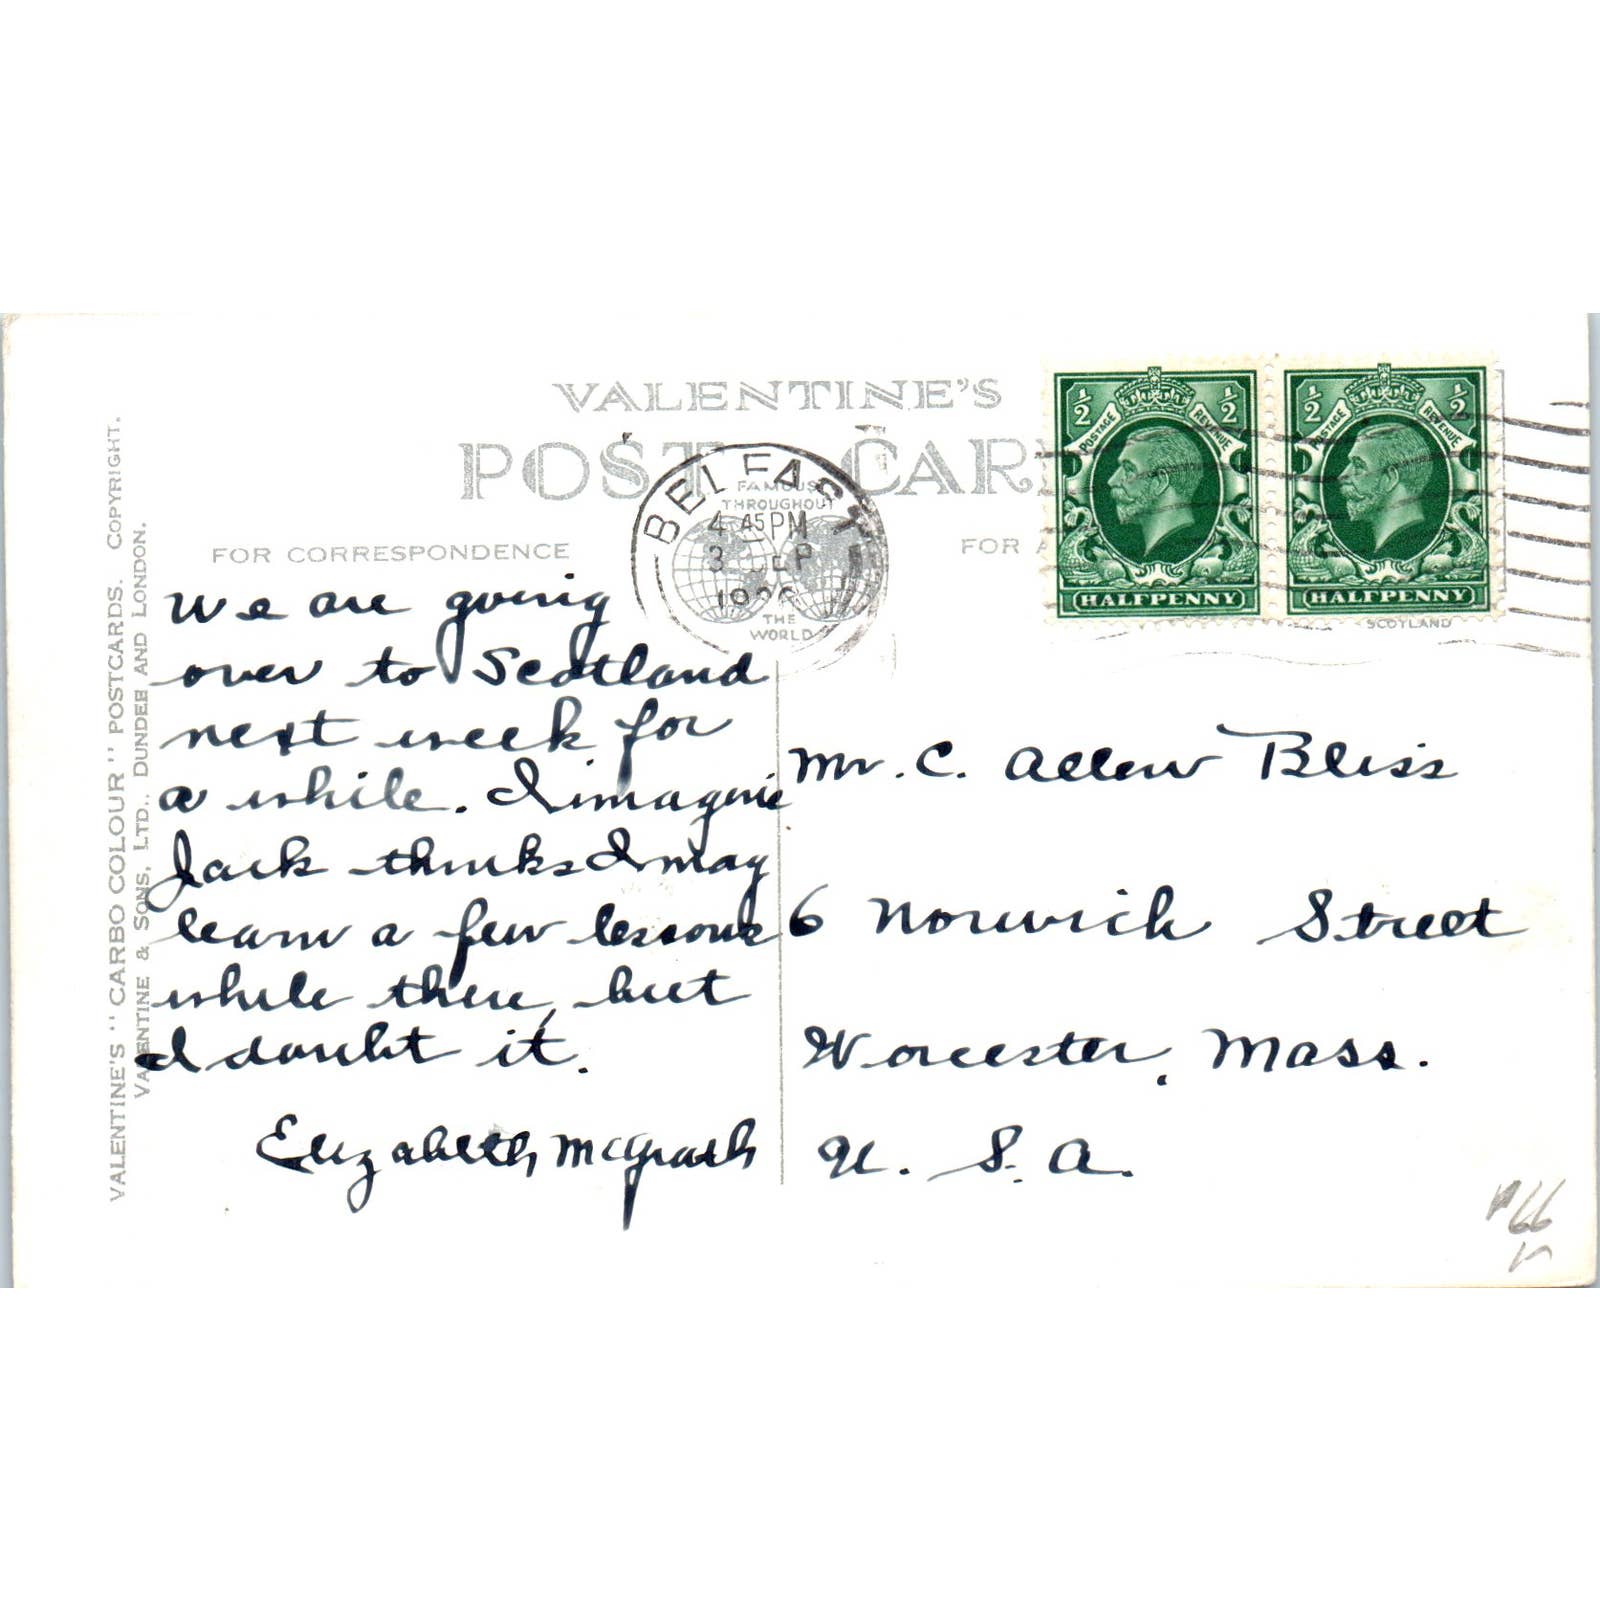 VALENTINE'S
POST CAR
FOR CORRESPONDENCE
FOR A
FAMOUS
THROUGHOUT
THE
WORLD
BELFAST
4.45 PM
3 SEP
HALFPENNY
POSTAGE REVENUE
1/2 1/2
HALFPENNY
POSTAGE REVENUE
1/2 1/2
SCOTLAND
VALENTINE'S "CARBO COLOUR" POSTCARDS. COPYRIGHT.
VALENTINE & SONS, LTD., DUNDEE AND LONDON.
We are going
over to Scotland
next week for
a while. I imagine
Jack thinks I may
learn a few lessons
while there, but
I doubt it.
Elizabeth McGrath
Mr. C. Allen Bliss
6 Norwich Street
Worcester, Mass.
U. S. A.